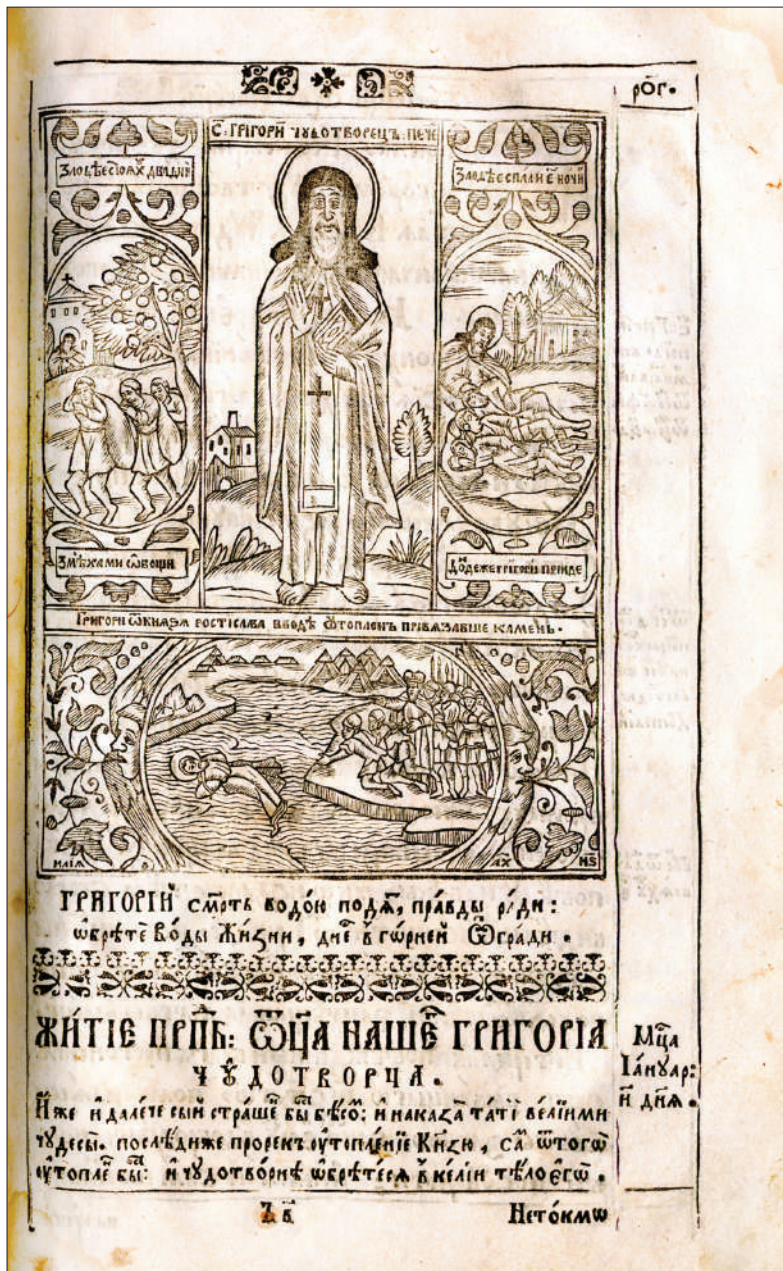 рог҃.
С: ГРІГОРИ ЧУДОТВОРЕЦЪ: ПЕЧЕ
ЗЛОДѢЕ СТОЯХУ ДВА ДНИ
ЗЛОДѢЕ СПАЛИ Е҃ НОЧИ
ЗМѢХАМИ ѠВОЩИ
ДОНДЕЖЕ ГРІГОРИ ПРИИДЕ
ГРИГОРИ Ѿ КНЯЗЯ РОСТІСЛАВА ВВОДѢ ѾТОПЛЕНЪ ПРИВЯЗАВШЕ КАМЕНЬ.
ИЛІЯ
АХ НЅ
ГРИГОРІЙ сме́рть водо́ю подя̀, пра́вды ра́ди:
ѡбрѣ́те Во́ды Жи́зни, дне҇ в̾ го́рней Ѿгра́ди.
ЖИ́ТІЕ ПРП҇Б: Ѿц҃А НАШЕ҇ ГРИГО́РІА
ЧꙊДОТВОРЧА.
Мц҃а
Іа́ннꙋар:
и҃ дн҃ѧ.
И́же и҆ дале́че сы́й стра́ше҇ бы҇ бѣсо҇: и҆ наказа̀ та́ті вели́ими
чꙋдесы̀. послѣ́ди же проре́къ ᲂу҆топле́ніе Кн҃зю, са҇ ѿ того̀
ᲂу҆то́пле҇ бы҇: и҆ чꙋдотво́рнѣ ѡбрѣ́теся в̾ ке́лїи тѣ́ло є҆гѡ̀.
Нето́кмѡ